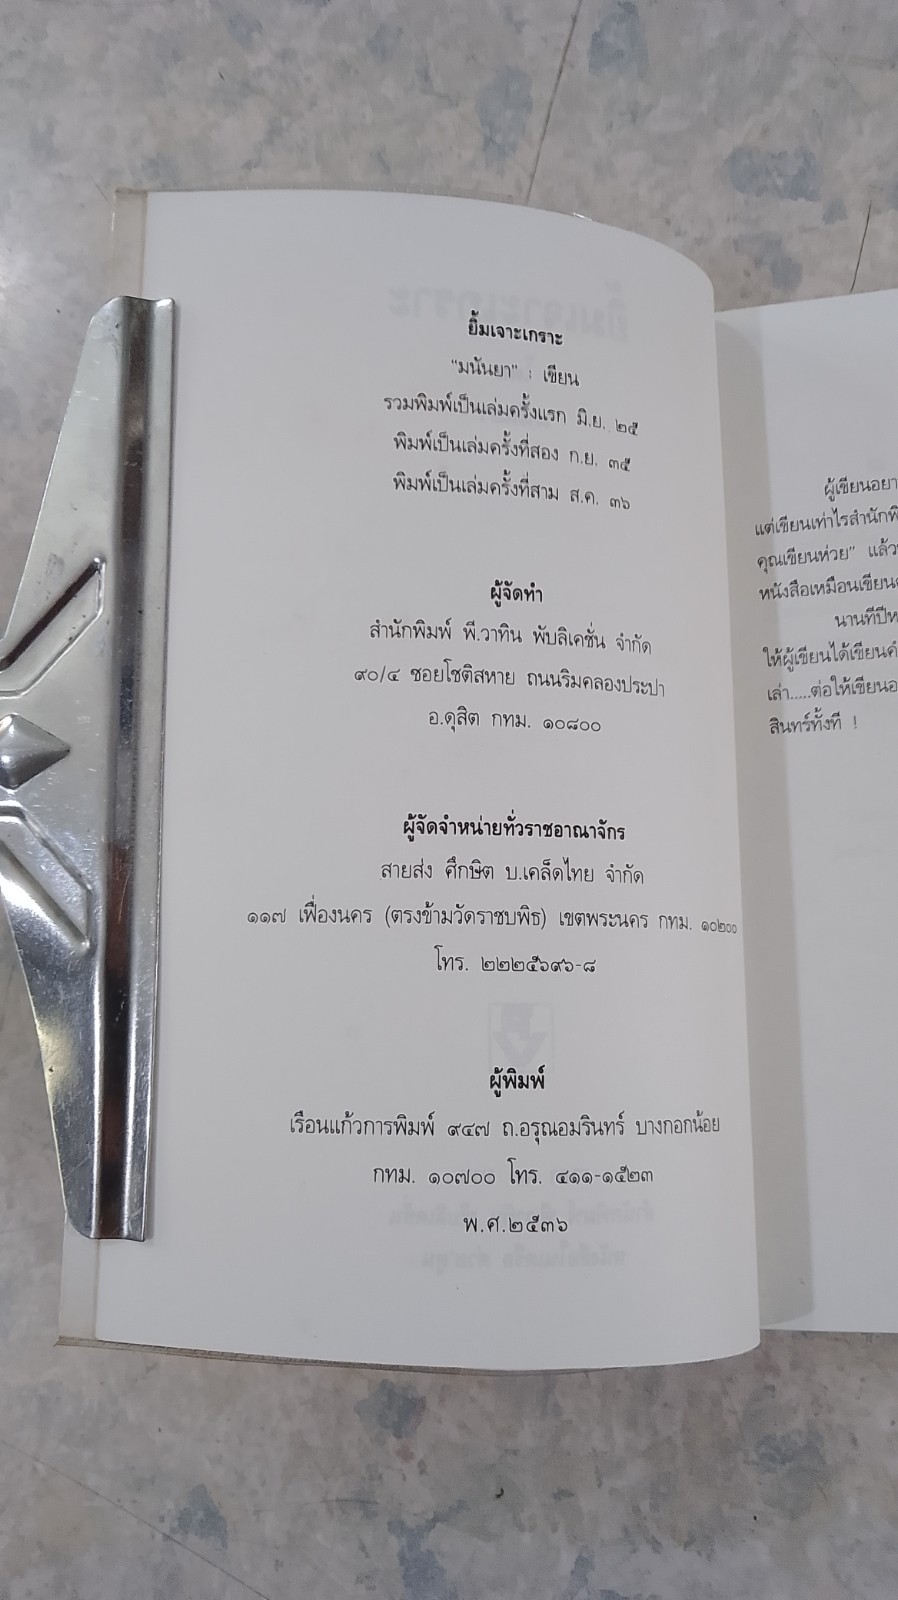 ยิ้มเจาะเกราะ
"มนันยา" : เขียน
รวมพิมพ์เป็นเล่มครั้งแรก มิ.ย. ๒๕
พิมพ์เป็นเล่มครั้งที่สอง ก.ย. ๓๕
พิมพ์เป็นเล่มครั้งที่สาม ส.ค. ๓๖
ผู้จัดทำ
สำนักพิมพ์ พี.วาทิน พับลิเคชั่น จำกัด
๙๐/๔ ซอยโชติสหาย ถนนริมคลองประปา
อ.ดุสิต กทม. ๑๐๘๐๐
ผู้จัดจำหน่ายทั่วราชอาณาจักร
สายส่ง ศึกษิต บ.เคล็ดไทย จำกัด
๑๑๗ เฟื่องนคร (ตรงข้ามวัดราชบพิธ) เขตพระนคร กทม. ๑๐๒๐๐
โทร. ๒๒๒๕๖๙๖-๘
ผู้พิมพ์
เรือนแก้วการพิมพ์ ๙๔๗ ถ.อรุณอมรินทร์ บางกอกน้อย
กทม. ๑๐๗๐๐ โทร. ๔๑๑-๑๕๒๓
พ.ศ.๒๕๓๖
ผู้เขียนอยา
แต่เขียนเท่าไรสำนักพิ
คุณเขียนห่วย" แล้ว
หนังสือเหมือนเขียน
นานทีปีห
ให้ผู้เขียนได้เขียนคำ
เล่า.....ต่อให้เขียนอ
สินทร์ทั้งที !